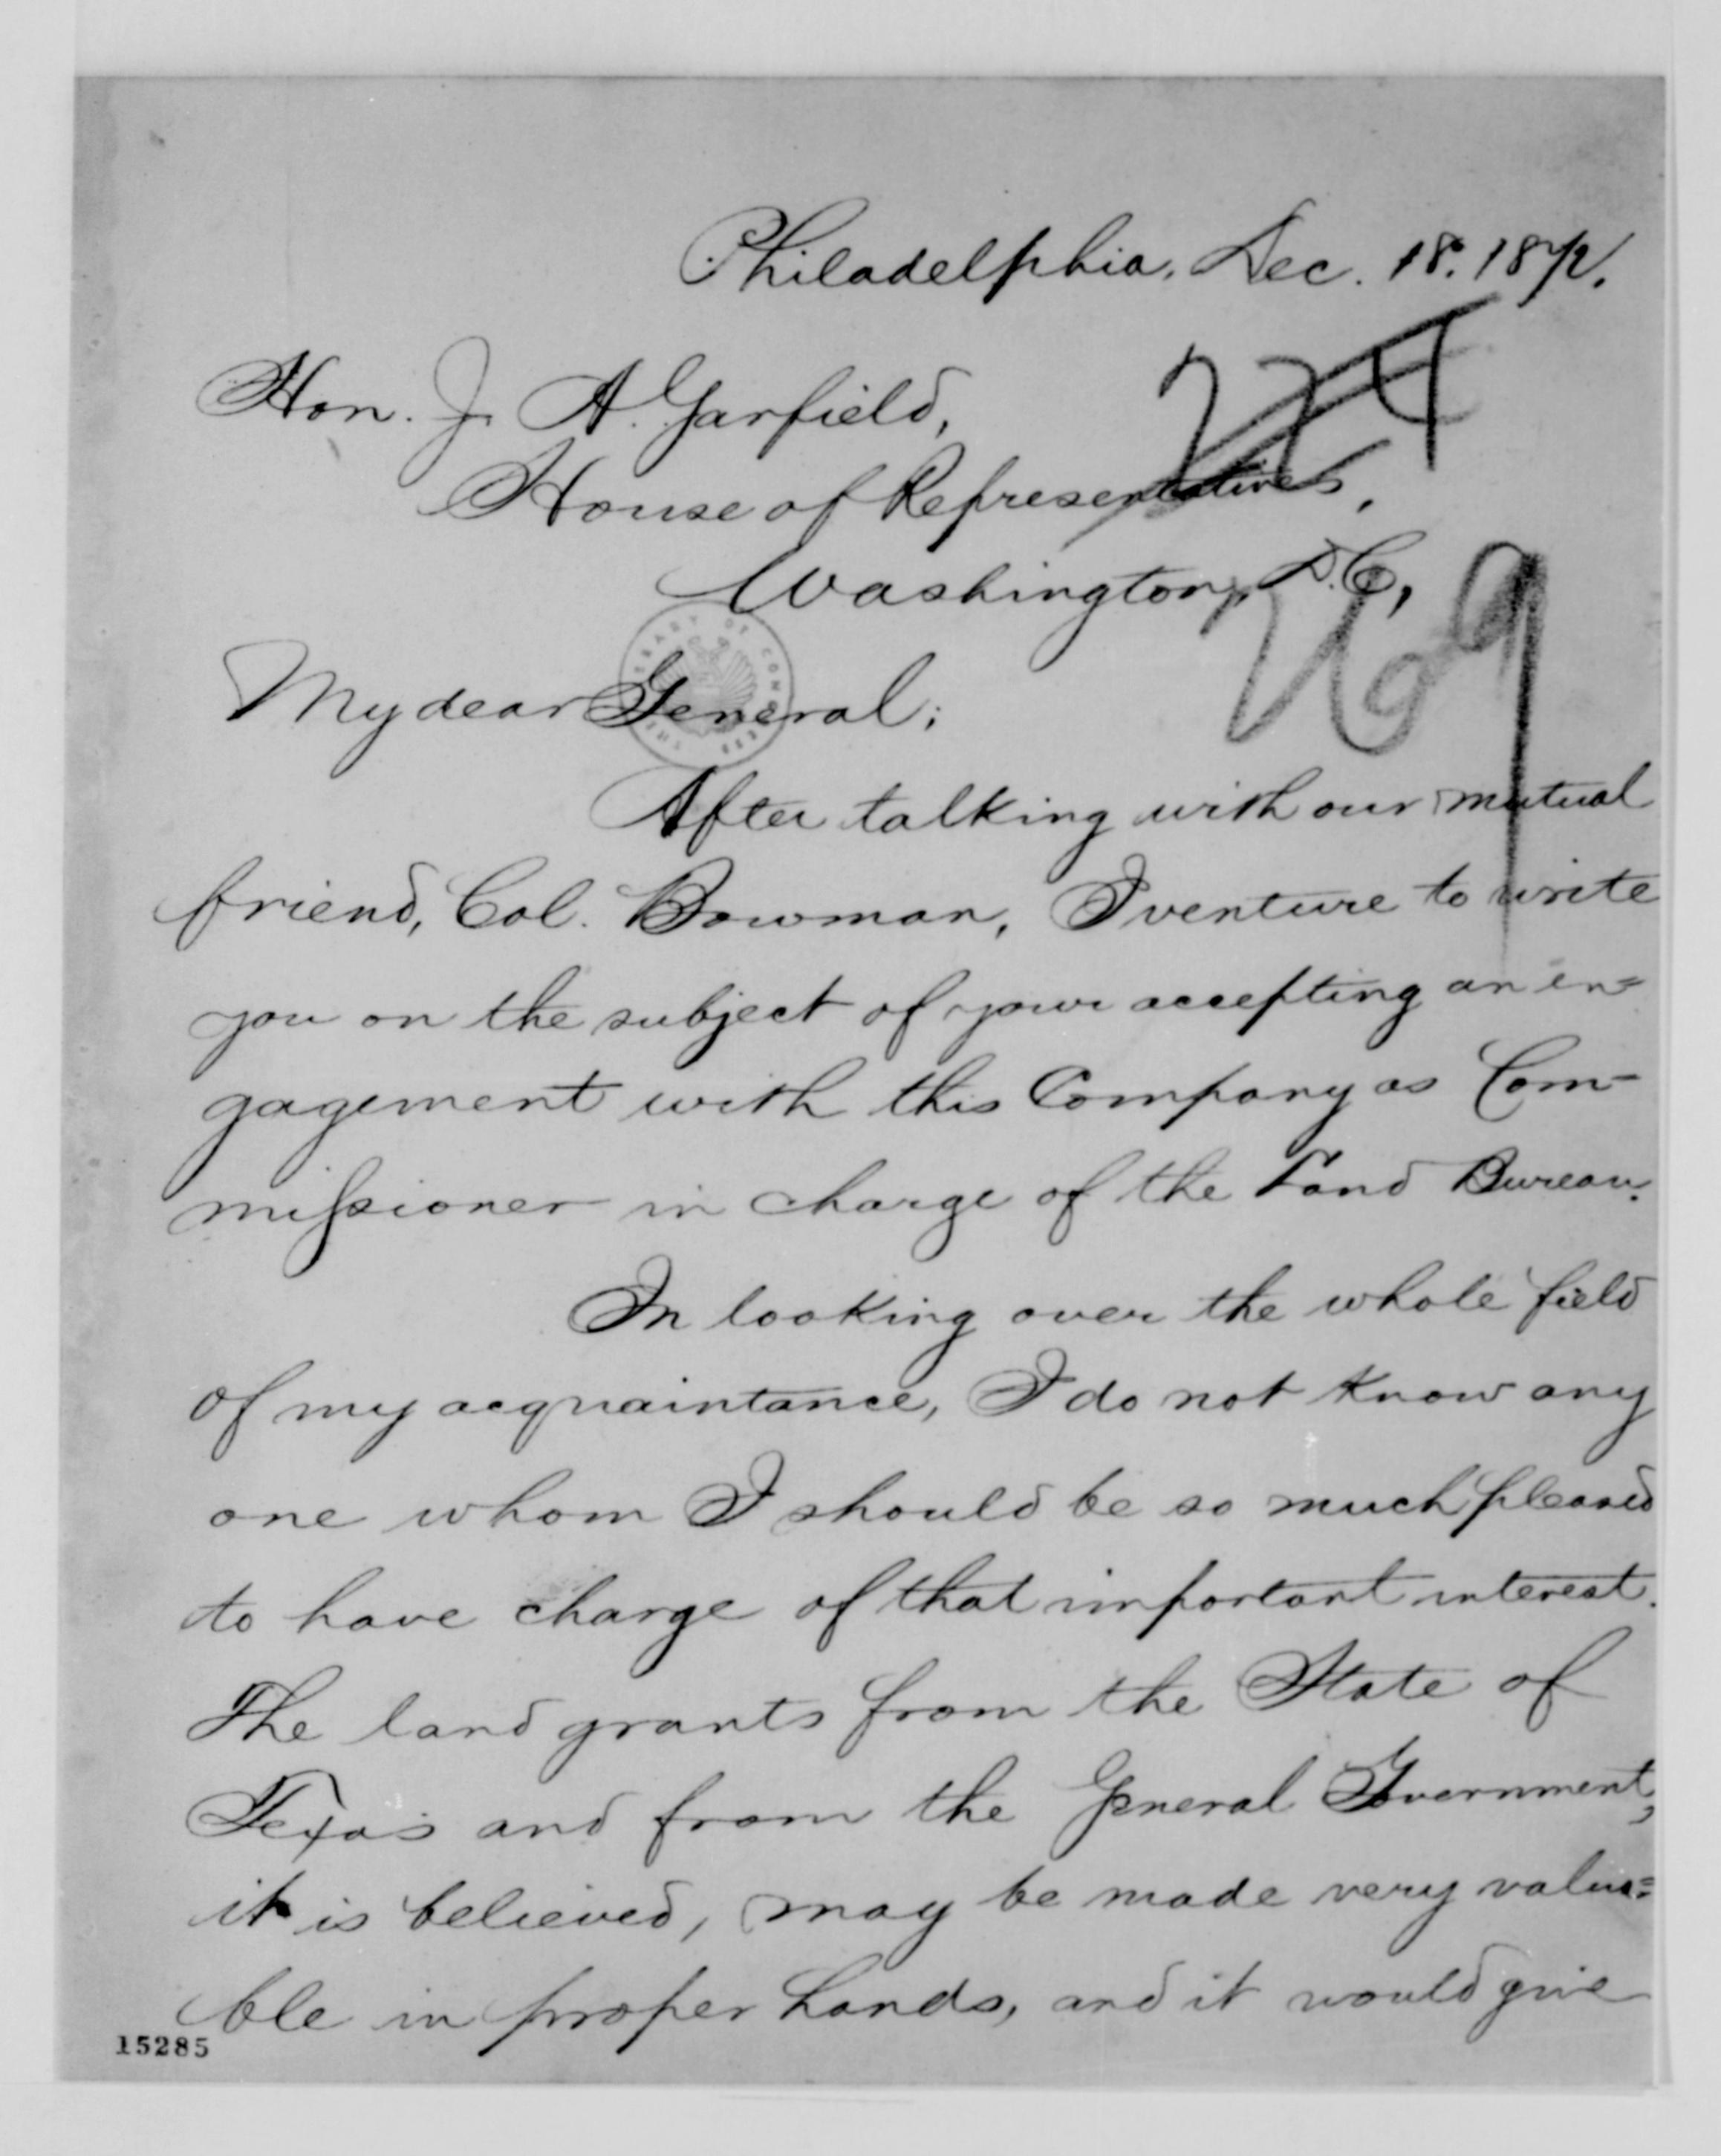 Philadelphia, Dec. 18. 1872.
Hon. J. A. Garfield,
House of Representatives,
Washington, D.C,
224
269
My dear General;
THE LIBRARY OF CONGRESS
After talking with our mutual
friend, Col. Bowman, I venture to write
you on the subject of your accepting an en=
gagement with this Company as Com=
missioner in charge of the Land Bureau.
In looking over the whole field
of my acquaintance, I do not know any
one whom I should be so much pleased
to have charge of that important interest.
The land grants from the State of
Texas and from the General Government,
it is believed, may be made very valua=
ble in proper hands, and it would give
15285